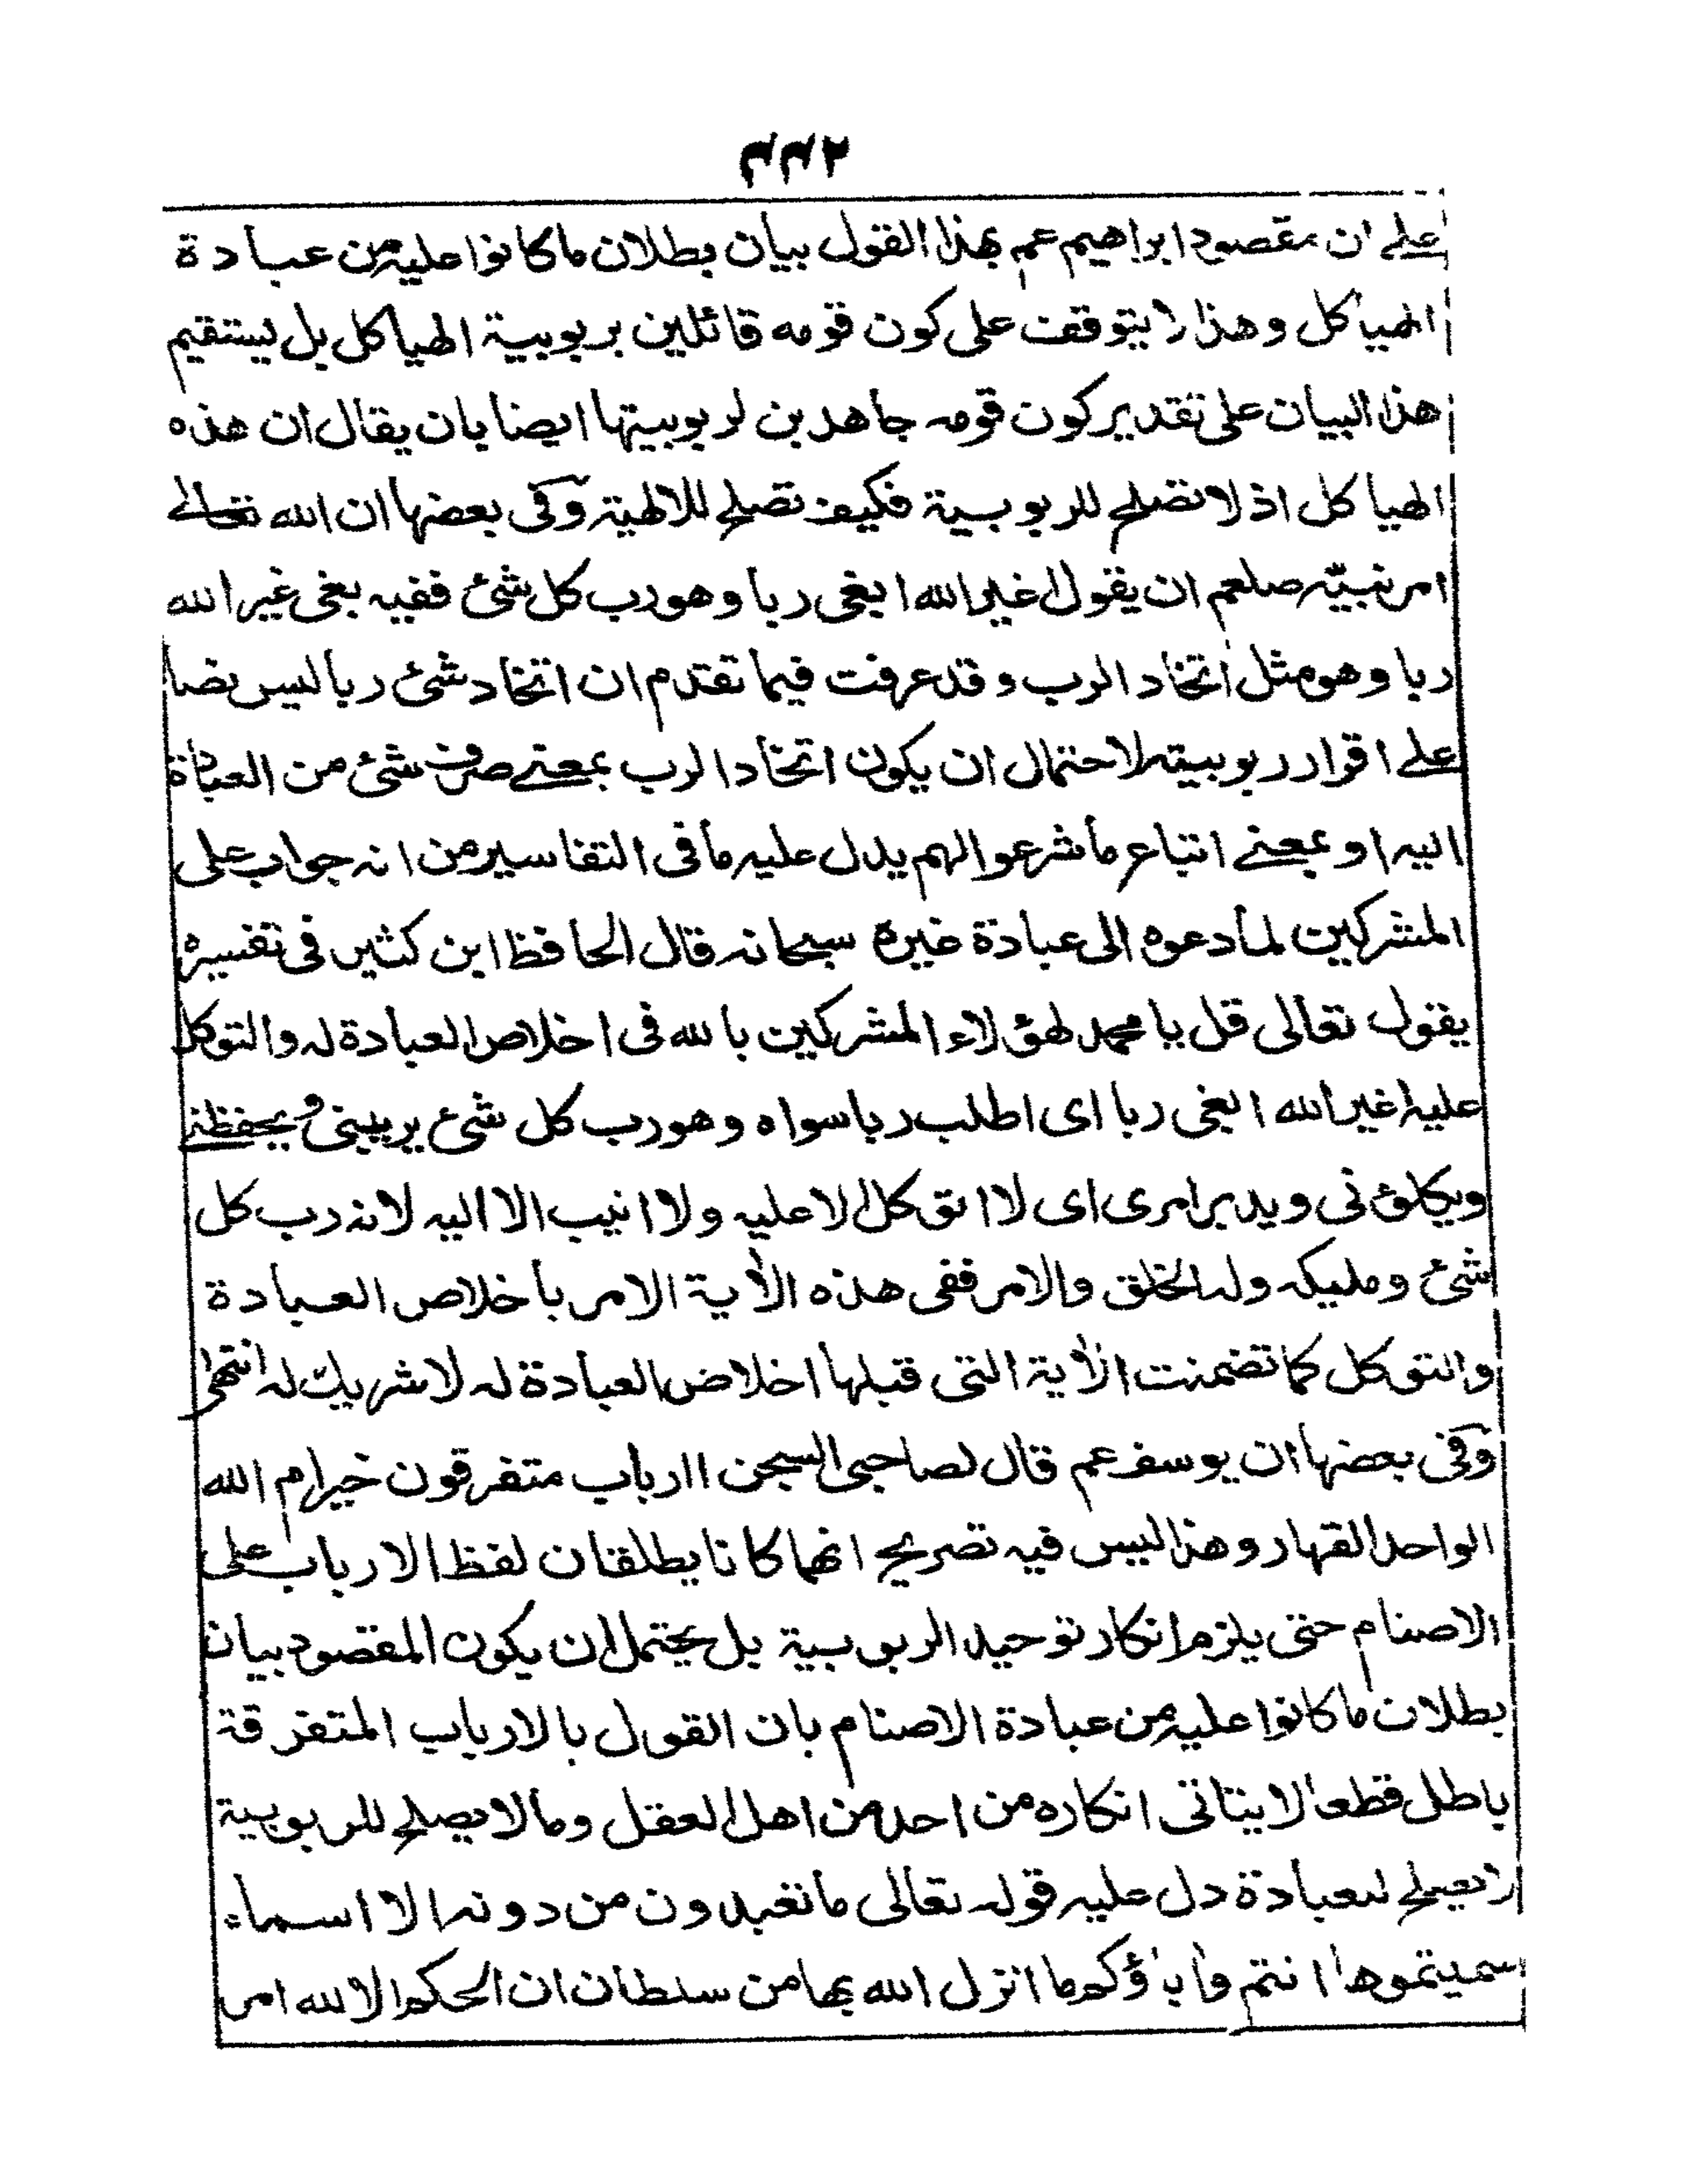 ۲۳۳
علے ان مقصود ابراهیم عم بهذا القول بیان بطلان ما کانوا علیه من عبادة
الهیاکل وهذا لا یتوقف علی کون قومه قائلین بربوبیة الهیاکل بل یستقیم
هذا البیان علی تقدیر کون قومه جاهدین لربوبیتها ایضا بان یقال ان هذه
الهیاکل اذ لا تصلح للربوبیة فکیف تصلح للالهیة وفی بعضها ان الله تعالے
امر نبیّه صلعم ان یقول اغیر الله ابغی ربا وهو رب کل شئ ففیه بغی غیر الله
ربا وهو مثل اتخاد الرب وقد عرفت فیما تقدم ان اتخاد شئ ربا لیس نصا
علے اقرار ربوبیته لاحتمال ان یکون اتخاد الرب بمعنے صرف شئ من العبادة
الیه او بمعنے اتباع ما شرعوا لهم یدل علیه ما فی التفاسیر من انه جواب علی
المشرکین لما دعوه الی عبادة غیره سبحانه قال الحافظ ابن کثیر فی تفسیره
یقول تعالی قل یا محمد لهؤلاء المشرکین بالله فی اخلاص العبادة له والتوکل
علیه اغیر الله ابغی ربا ای اطلب ربا سواه وهو رب کل شئ یربینی ویحفظنے
ویکلؤنی ویدبر امری ای لا اتوکل الا علیه ولا انیب الا الیه لانه رب کل
شئ وملیکه وله الخلق والامر ففی هذه الاٰیة الامر باخلاص العبادة
والتوکل کما تضمنت الاٰیة التی قبلها اخلاص العبادة له لا شریك له انتهی
وفی بعضها ان یوسف عم قال لصاحبی السجن اارباب متفرقون خیر ام الله
الواحد القهار وهذا لیس فیه تصریح انهما کانا یطلقان لفظ الارباب علی
الاصنام حتی یلزم انکار توحید الربوبیة بل یحتمل ان یکون المقصود بیان
بطلان ما کانوا علیه من عبادة الاصنام بان القول بالارباب المتفرقة
باطل قطعا لا یتاتی انکاره من احد من اهل العقل وما لا یصلح للربوبیة
لا یصلح للعبادة دل علیه قوله تعالی ما تعبدون من دونه الا اسماء
سمیتموها انتم واٰباؤکم ما انزل الله بها من سلطان ان الحکم الا لله امر